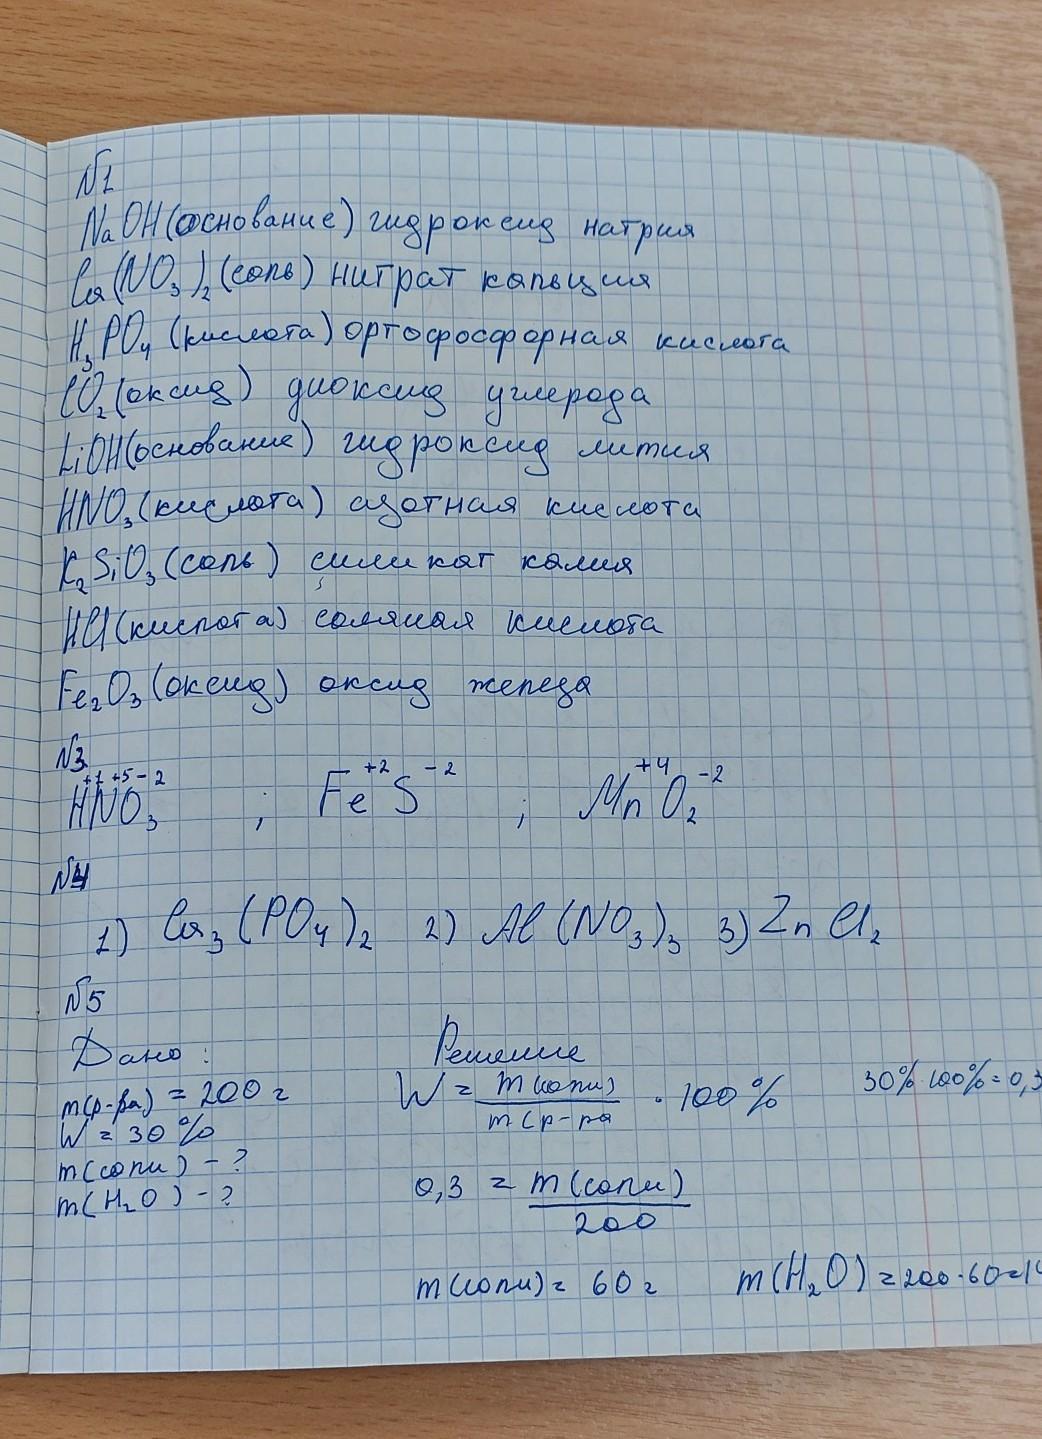 №1
NaOH (основание) гидроксид натрия
Ca(NO₃)₂ (соль) нитрат кальция
H₃PO₄ (кислота) ортофосфорная кислота
CO₂ (оксид) диоксид углерода
LiOH (основание) гидроксид лития
HNO₃ (кислота) азотная кислота
K₂SiO₃ (соль) силикат калия
HCl (кислота) соляная кислота
Fe₂O₃ (оксид) оксид железа
№3
+1 +5 -2 +2 -2 +4 -2
HNO₃ ; FeS ; MnO₂
№4
1) Ca₃(PO₄)₂ 2) Al(NO₃)₃ 3) ZnCl₂
№5
Дано: Решение
m(р-ра) = 200 г W = m(соли) / m(р-ра · 100% 30% · 100% = 0,3
W = 30%
m(соли) - ?
m(H₂O) - ? 0,3 = m(соли) / 200
m(соли) = 60 г m(H₂O) = 200 · 60 = 14